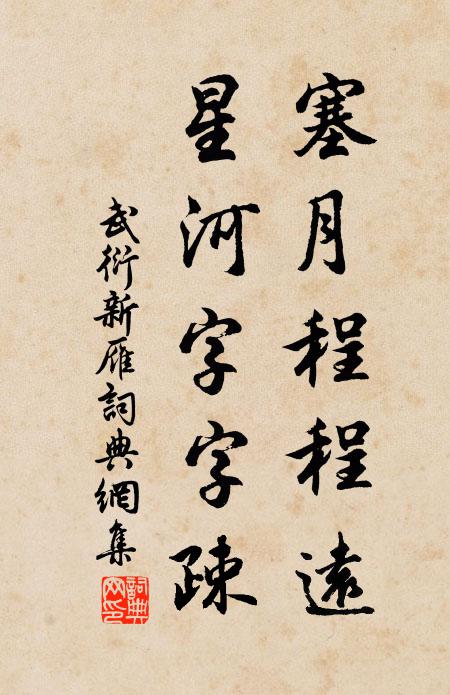 塞月程程遠
星河字字疎
武衍新雁詞典網集
詞典網印